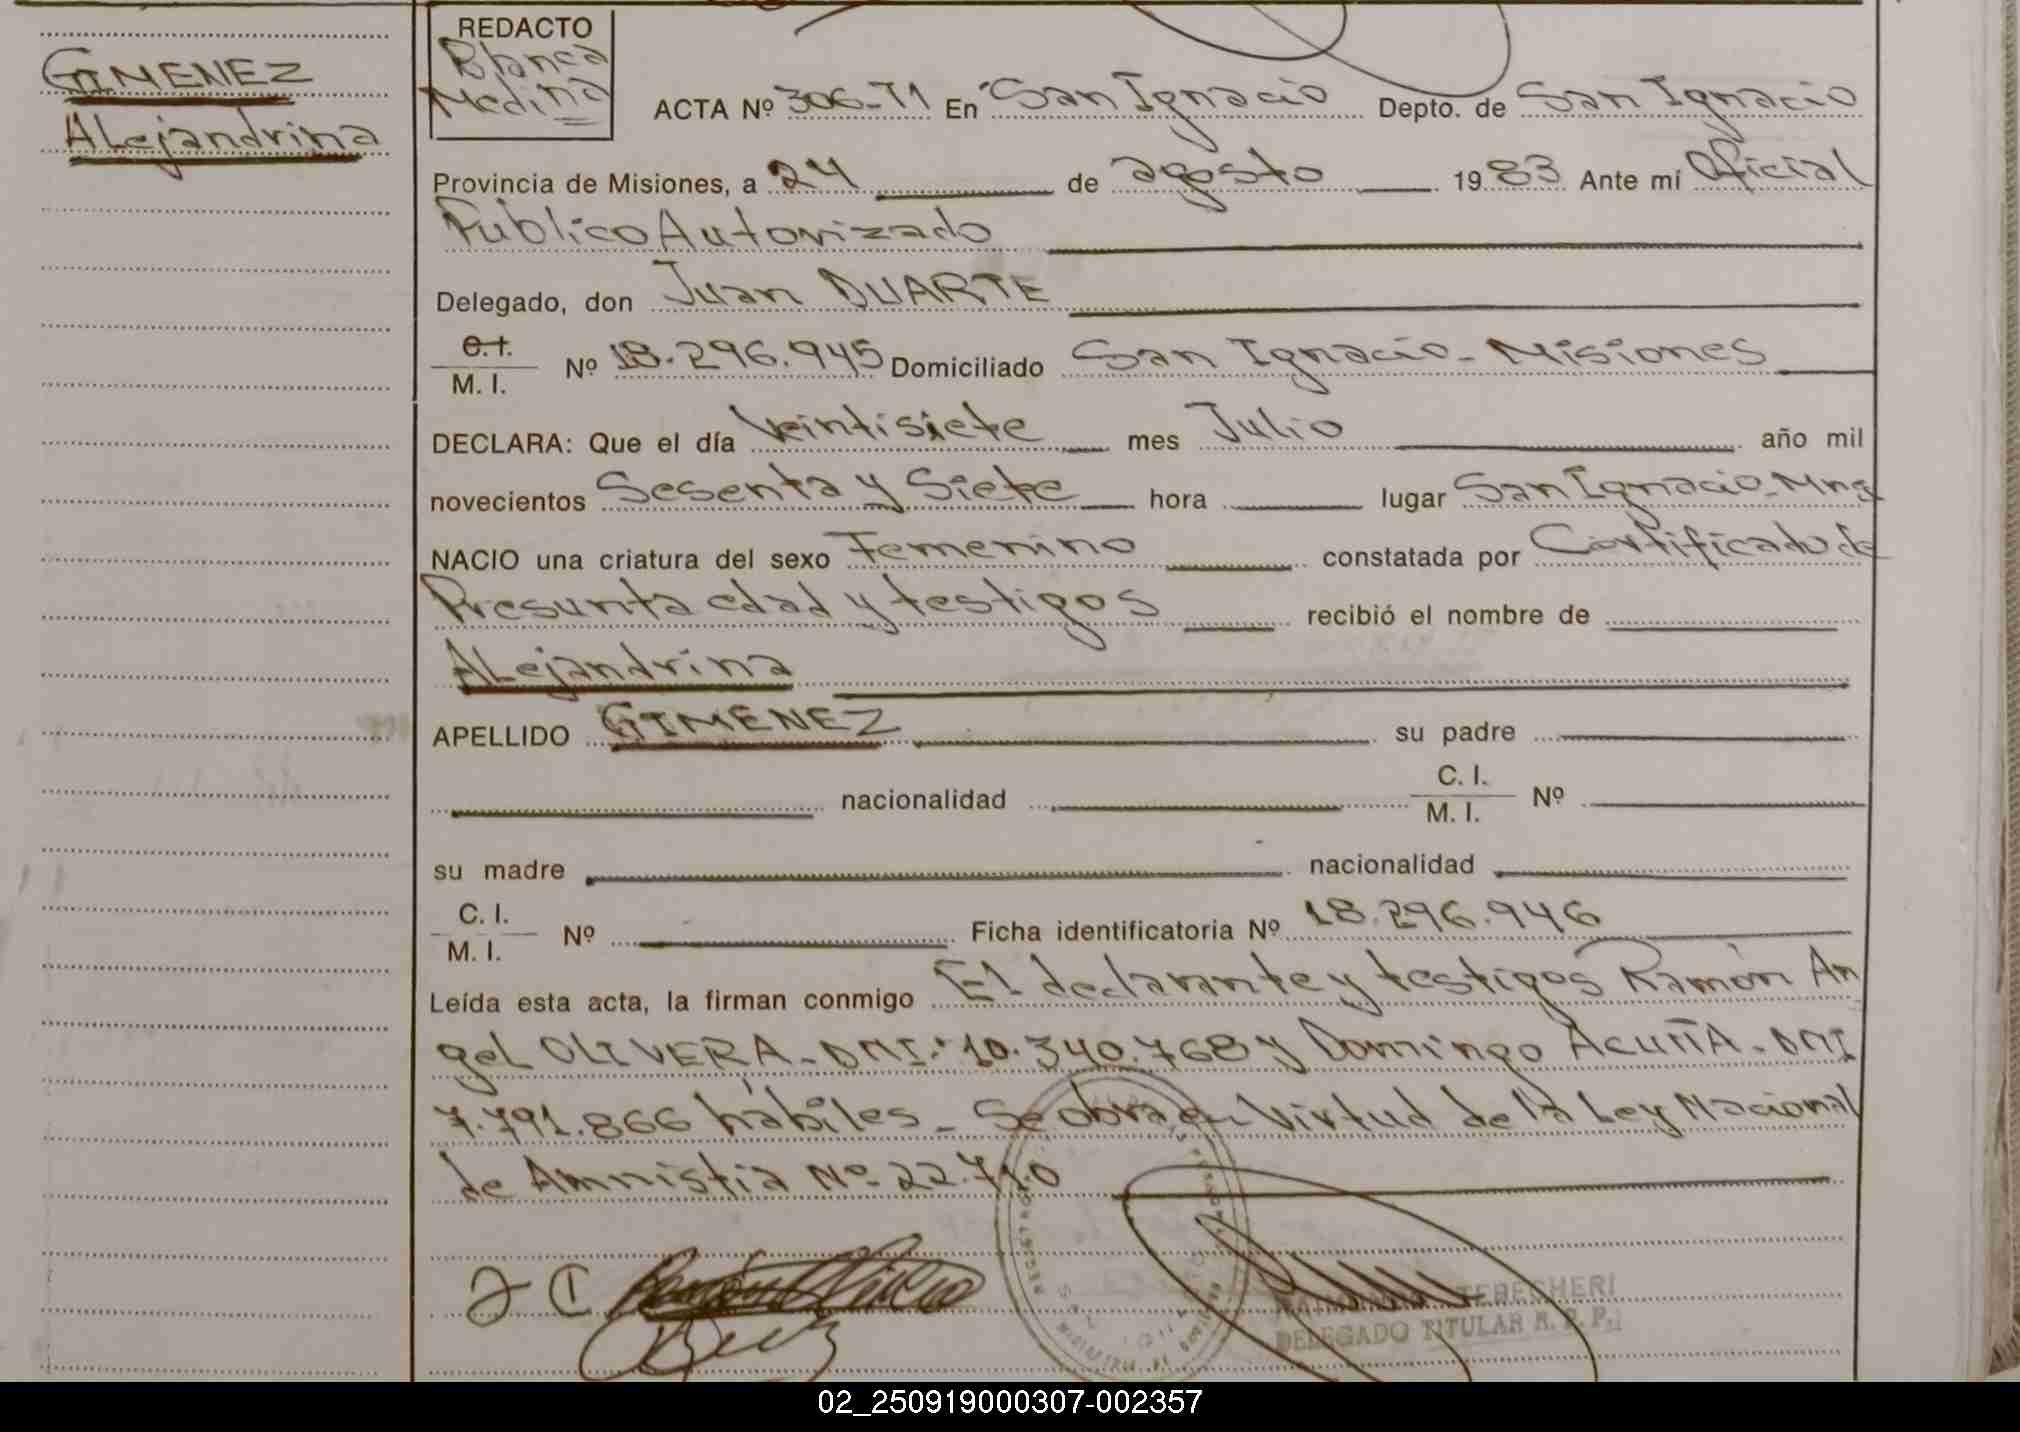 GIMENEZ
Alejandrina
REDACTO
Blanca
Medina
ACTA Nº 306-T1 En San Ignacio Depto. de San Ignacio
Provincia de Misiones, a 24 de agosto 1983 Ante mí Oficial
Público Autorizado
Delegado, don Juan DUARTE
C.I.
M. I. Nº 18.296.945 Domiciliado San Ignacio - Misiones
DECLARA: Que el día Veintisiete mes Julio año mil
novecientos Sesenta y Siete hora lugar San Ignacio - Mnes
NACIO una criatura del sexo Femenino constatada por Certificado de
Presunta edad y testigos recibió el nombre de
Alejandrina
APELLIDO GIMENEZ su padre
nacionalidad C. I.
M. I. Nº
su madre nacionalidad
C. I.
M. I. Nº Ficha identificatoria Nº 18.296.946
Leída esta acta, la firman conmigo El declarante y testigos Ramón An
gel OLIVERA - DNI. 10.340.768 y Domingo ACUÑA - DNI
7.791.866 hábiles - Se obra en virtud de la Ley Nacional
de Amnistia Nº 22.710
TEBECHERI
DELEGADO TITULAR R. P. P.
02_250919000307-002357